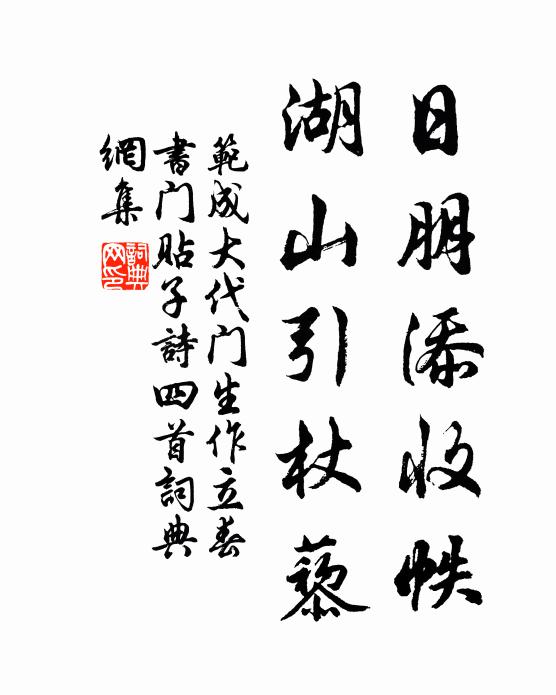 日明添收帙
湖山引杖藜
範成大代门生作立春
書门貼子詩四首詞典
網集
詞典网印